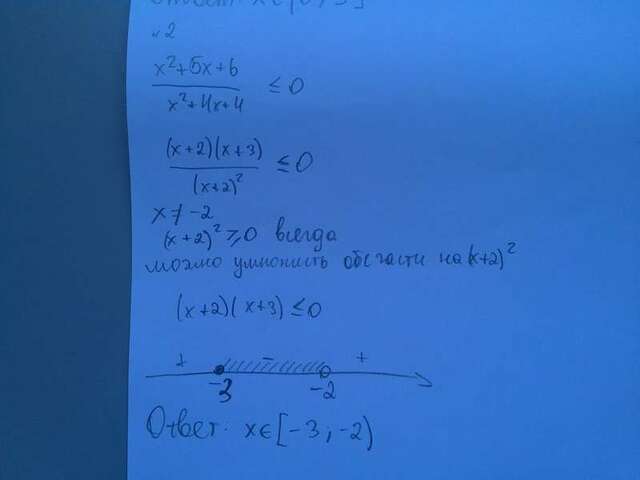 Ответ: x ∈ [0; 3]
№2
x²+5x+6 / x²+4x+4 ≤ 0
(x+2)(x+3) / (x+2)² ≤ 0
x ≠ -2
(x+2)² ≥ 0 всегда
можно умножить обе части на (x+2)²
(x+2)(x+3) ≤ 0
+ - +
-3 -2
Ответ: x ∈ [-3; -2)